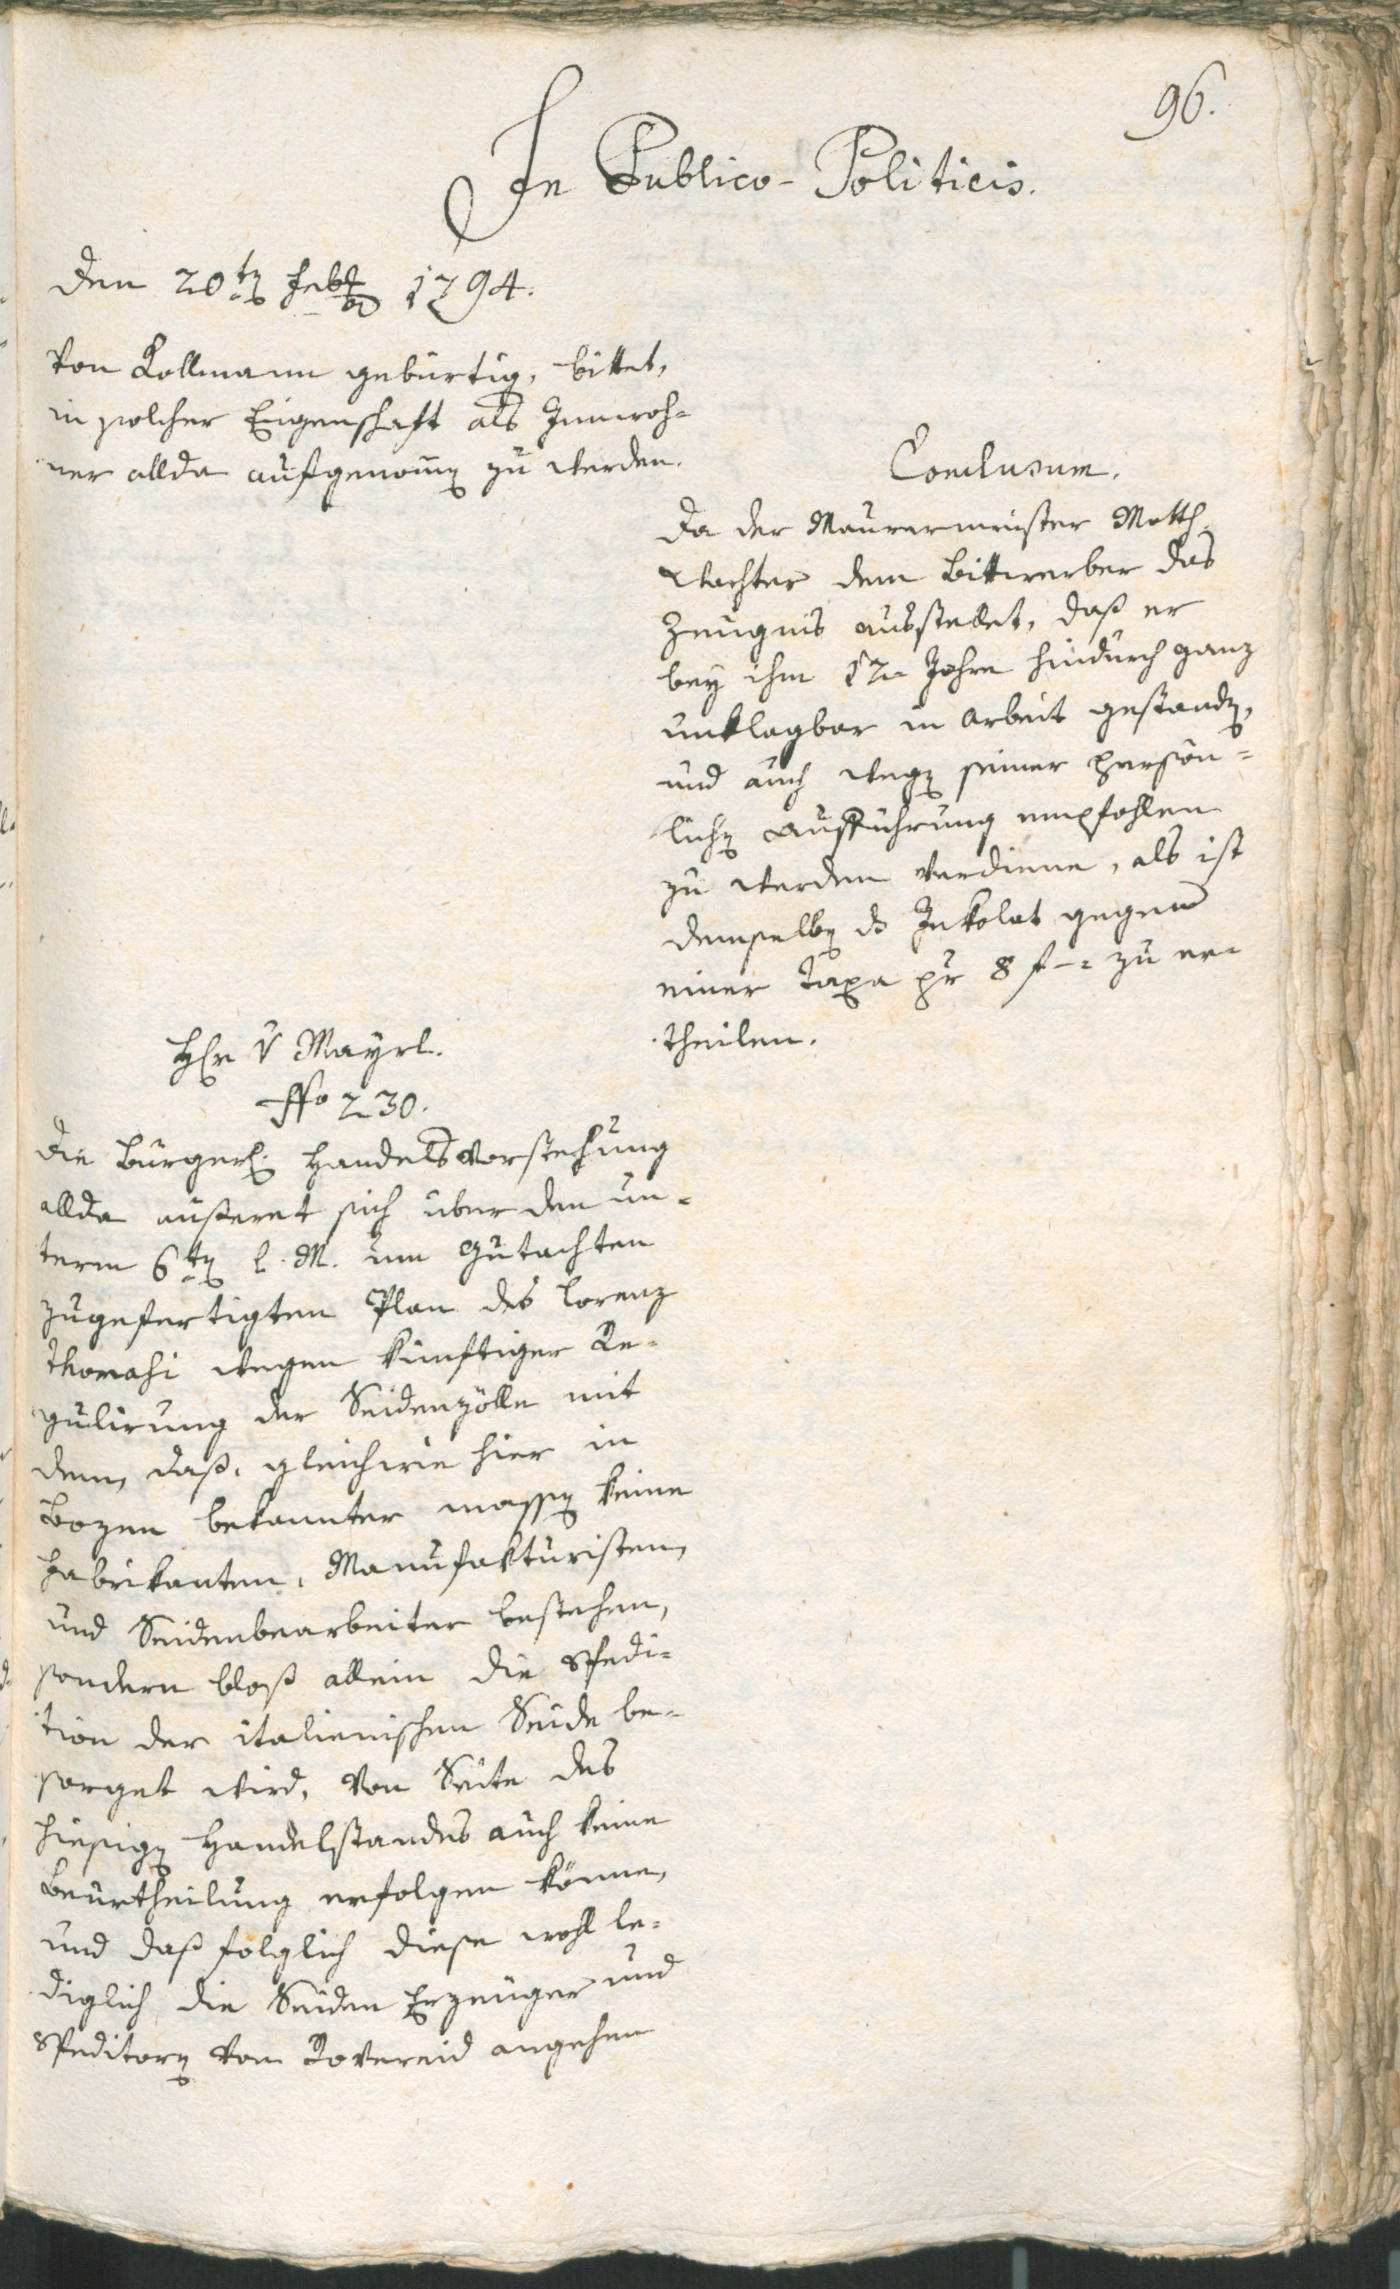 96.
In Publico-Politicis.
Den 20tẽ Febr 1794.
von Kollmann gebürtig, bittet,
in solcher Eigenschaft als Innwoh-
ner allda aufgenom̄en zu werden.
Conclusum.
Da der Maurermeister Matth.
Wachter dem Bittwerber das
Zeugnis ausstellet, daß er
bey ihm 12 Jahre hindurch ganz
unklagbar in Arbeit gestanden,
und auch wegen seiner persön-
lichen Aufführung empfohlen
zu werden verdiene, als ist
demselben ds Inkolat gegen
einer Taxa pr 8 f – zu er-
theilen.
Hr v Mayrl.
No 230.
Die Bürgerl. Handelsvorstehung
allda äußeret sich über den un-
term 6ten l. M. um Gutachten
zugefertigten Plan des Lorenz
Thomasi wegen künftiger Re-
gulirung der Seidenzölle mit
dem, daß, gleichwie hier in
Bozen bekannter massen keine
Fabrikanten, Manufakturisten,
und Seidenbearbeiter bestehen,
sondern bloß allein die Spedi-
tion der italienischen Seide be-
sorget wird, von Seite des
hiesigen Handelstandes auch keine
Beurtheilung erfolgen könne,
und daß folglich diese wohl le-
diglich die Seiden Erzeuger und
Speditorn von Rovereid angehen